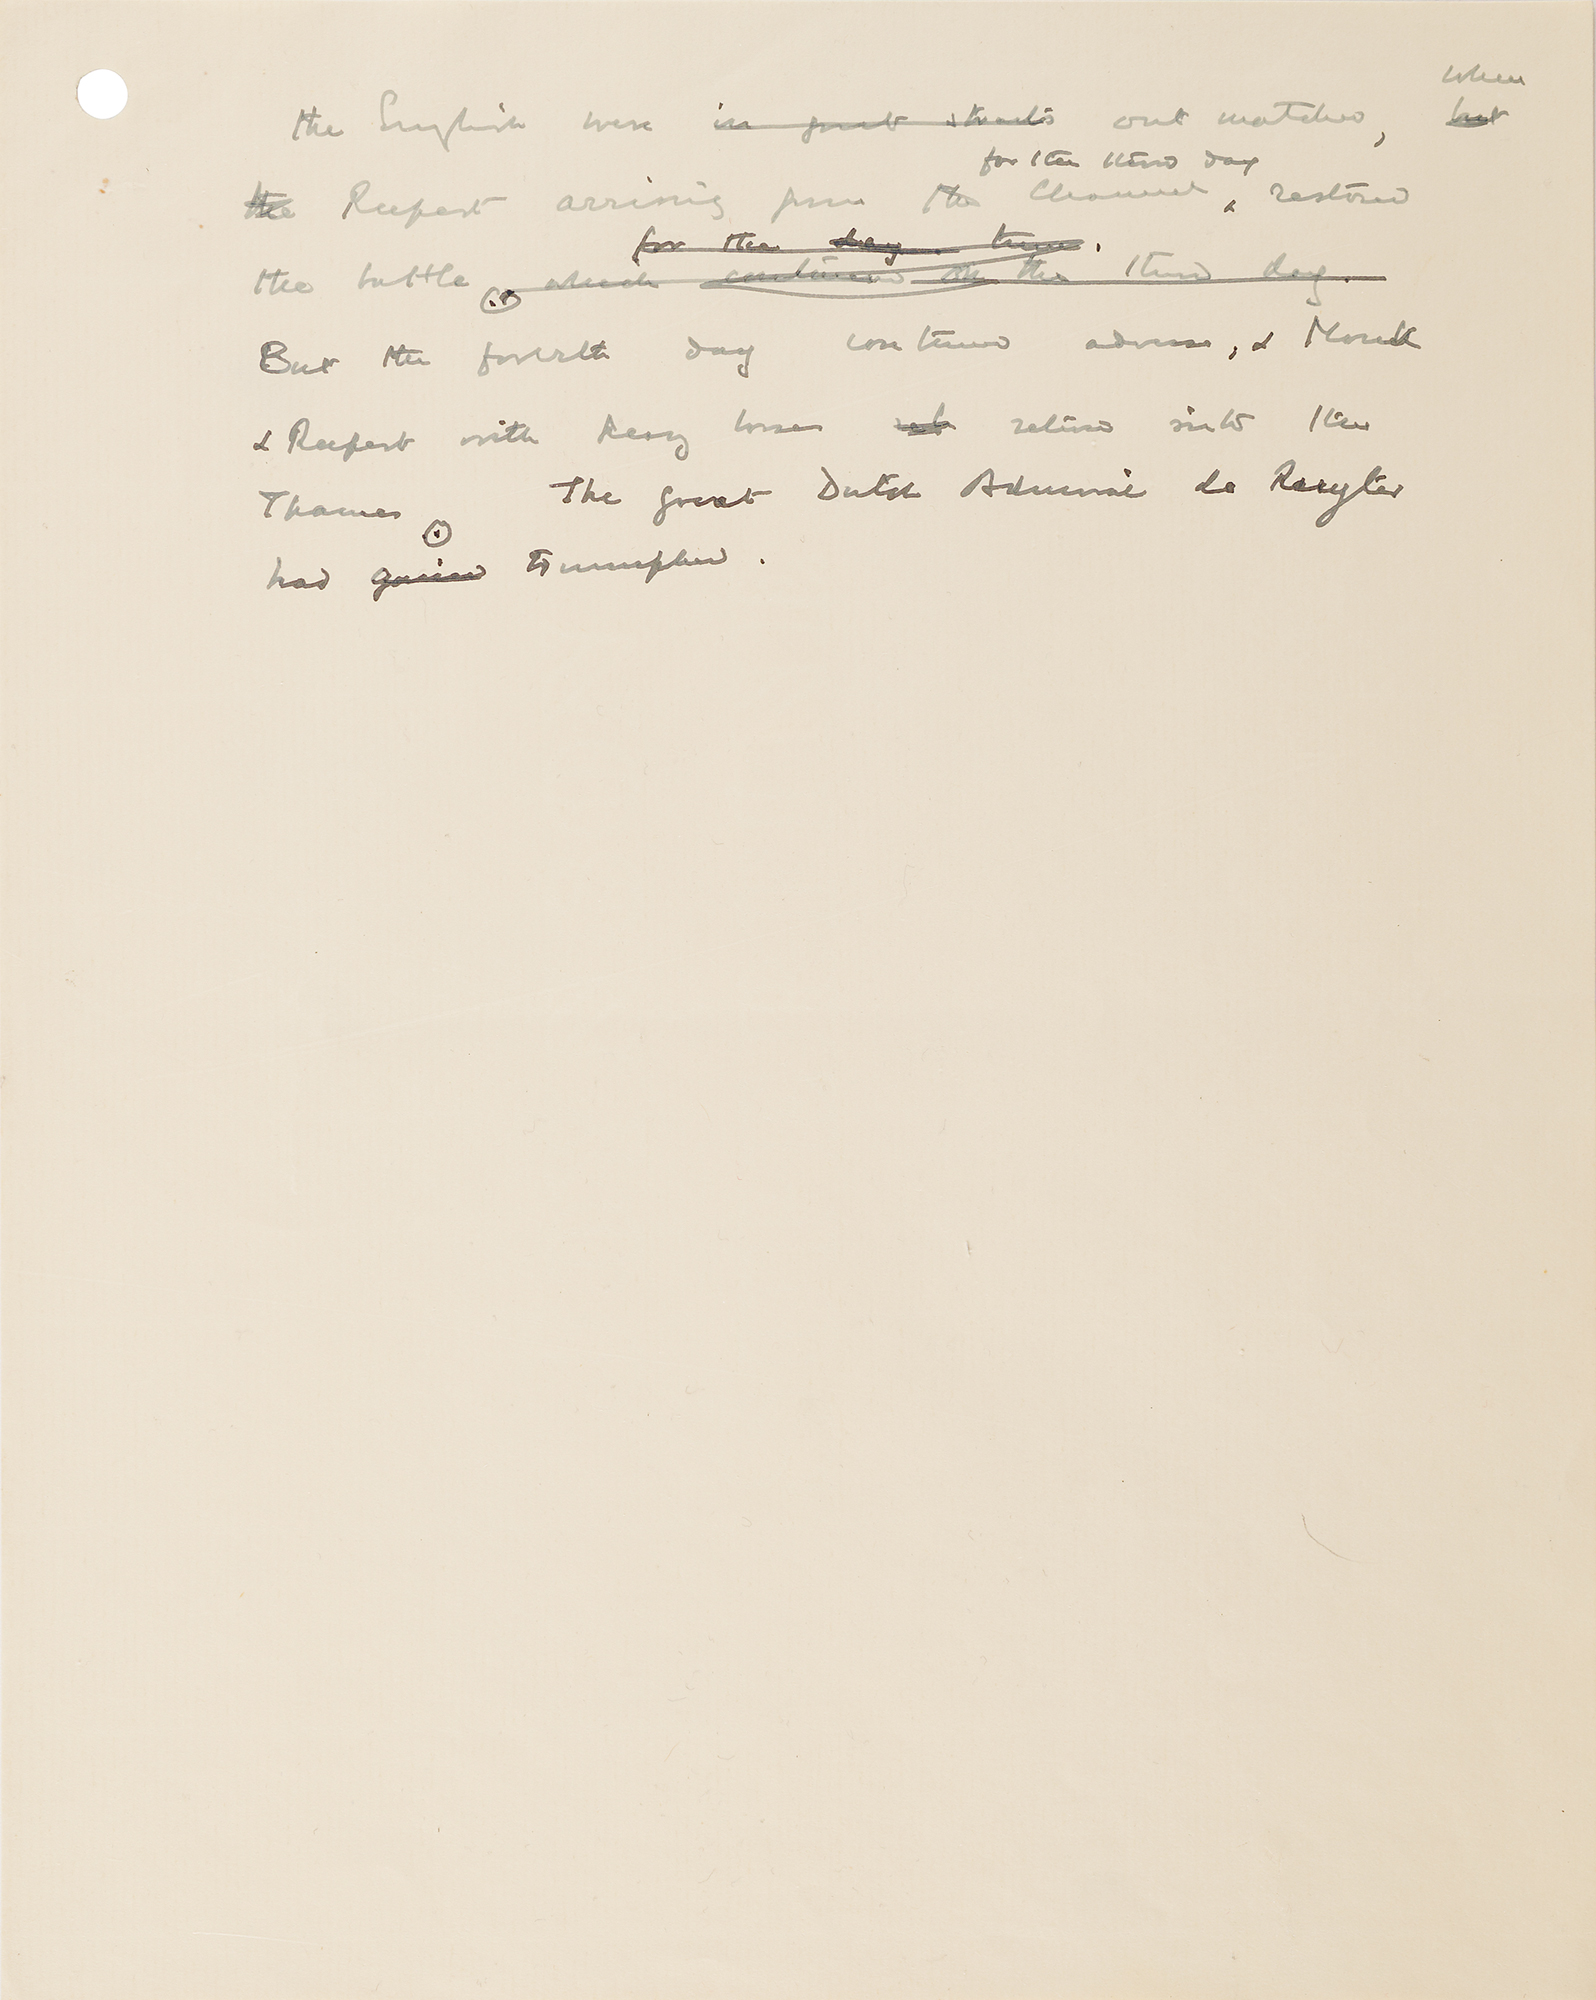 when
the English were in great straits out matched, but
for the third day
the Rupert arriving from the Channel, & restored
for the day time.
the battle. which continued on the third day.
But the fourth day continued adverse, & Monck
& Rupert with heavy losses retired into the
Thames. The great Dutch Admiral de Ruyter
had gained triumphed.